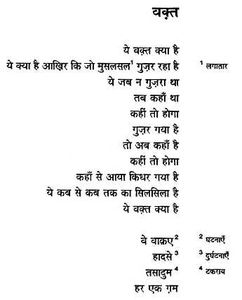 वक़्त
ये वक़्त क्या है
ये क्या है आख़िर कि जो मुसलसल¹ गुज़र रहा है
¹ लगातार
ये जब न गुज़रा था
तब कहाँ था
कहीं तो होगा
गुज़र गया है
तो अब कहाँ है
कहीं तो होगा
कहाँ से आया किधर गया है
ये कब से कब तक का सिलसिला है
ये वक़्त क्या है
ये वाक़ए²
² घटनाएँ
हादसे³
³ दुर्घटनाएँ
तसादुम⁴
⁴ टकराव
हर एक ग़म